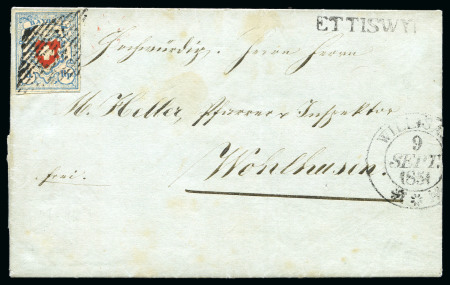 RAYON
ETTISWYL
Hochwürdig. Herrn Herrn
M. Heller, Pfarrer & Inspektor
Wohlhusen.
frei.
WILLISAU
9
SEPT.
1851